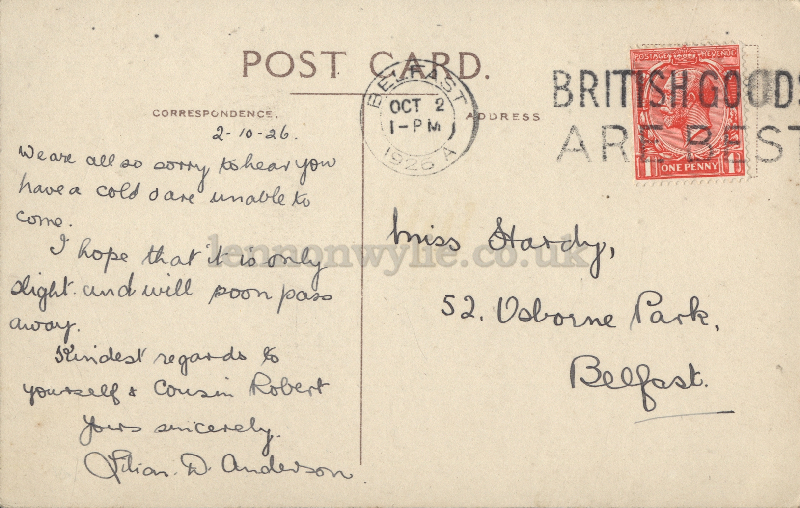 POST CARD.
CORRESPONDENCE.
ADDRESS
BELFAST
OCT 2
1-PM
1926 A
BRITISH GOODS
ARE BEST
POSTAGE REVENUE
ONE PENNY
2-10-26.
We are all so sorry to hear you
have a cold & are unable to
come.
I hope that it is only
slight and will soon pass
away.
Kindest regards to
yourself & Cousin Robert
Yours sincerely.
Lilian. D. Anderson
Miss Hardy,
52. Osborne Park,
Belfast.
lennonwylie.co.uk